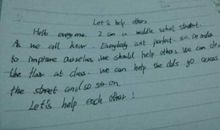 Let's help others
Hello everyone. I am in middle school student.
As we all know. Everybody isn't perfect. so. In order
to improve ourselves we should help others. We can do
like them at class. we can help the olds go across
the street and so so on.
Let's help each other!